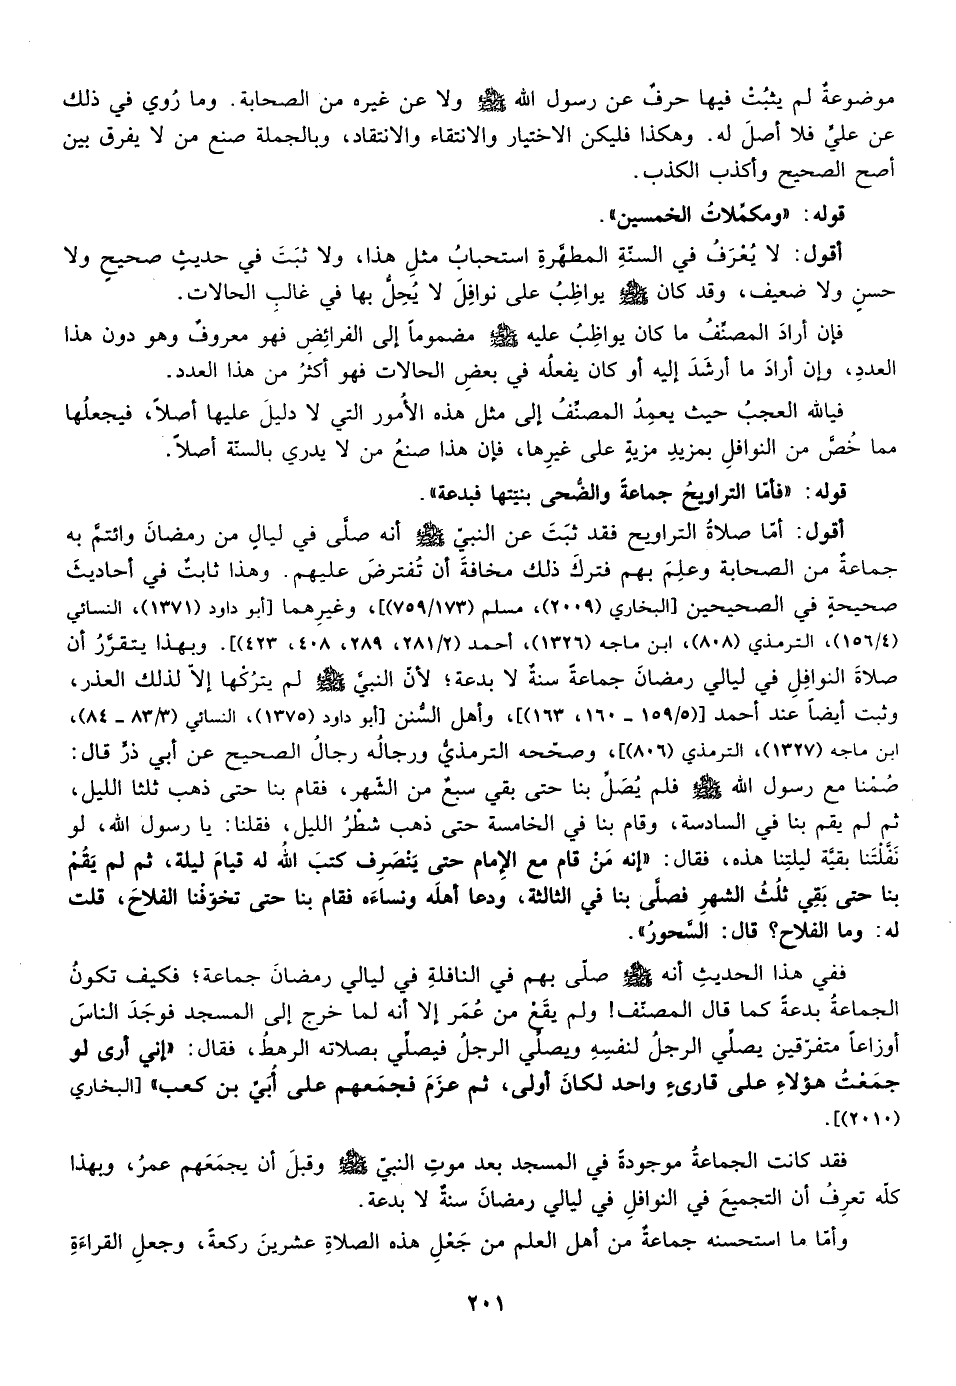 موضوعةٌ لم يثبُتْ فيها حرفٌ عن رسول الله ﷺ ولا عن غيره من الصحابة. وما رُوي في ذلك
عن عليٍّ فلا أصلَ له. وهكذا فليكن الاختيار والانتقاء والانتقاد، وبالجملة صنع من لا يفرق بين
أصح الصحيح وأكذب الكذب.
قوله: «ومكمِّلاتُ الخمسين».
أقول: لا يُعْرَفُ في السنّةِ المطهَّرةِ استحبابُ مثلِ هذا، ولا ثبَتَ في حديثٍ صحيحٍ ولا
حسنٍ ولا ضعيف، وقد كان ﷺ يواظِبُ على نوافِلَ لا يُخِلُّ بها في غالبِ الحالات.
فإن أرادَ المصنِّفُ ما كان يواظِبُ عليه ﷺ مضموماً إلى الفرائِضِ فهو معروفٌ وهو دون هذا
العددِ، وإن أرادَ ما أرشَدَ إليه أو كان يفعلُه في بعضِ الحالات فهو أكثرُ من هذا العدد.
فيالله العجبُ حيث يعمِدُ المصنِّفُ إلى مثل هذه الأُمور التي لا دليلَ عليها أصلاً، فيجعلُها
مما خُصَّ من النوافلِ بمزيدِ مزيةٍ على غيرِها، فإن هذا صنعُ من لا يدري بالسنّة أصلاً.
قوله: «فأمّا التراويحُ جماعةً والضُّحى بنيّتها فبدعة».
أقول: أمّا صلاةُ التراويح فقد ثبَتَ عن النبيّ ﷺ أنه صلَّى في ليالٍ من رمضانَ وائتمَّ به
جماعةٌ من الصحابة وعلِمَ بهم فتركَ ذلك مخافةَ أن تُفترضَ عليهم. وهذا ثابتٌ في أحاديثَ
صحيحةٍ في الصحيحين [البخاري (٢٠٠٩)، مسلم (٧٥٩/١٧٣)]، وغيرِهما [أبو داود (١٣٧١)، النسائي
(١٥٦/٤)، الترمذي (٨٠٨)، ابن ماجه (١٣٢٦)، أحمد (٢٨١/٢، ٢٨٩، ٤٠٨، ٤٢٣)]. وبهذا يتقرَّرُ أن
صلاةَ النوافِلِ في ليالي رمضانَ جماعةً سنةٌ لا بدعة؛ لأنّ النبيَّ ﷺ لم يترُكْها إلاّ لذلك العذر،
وثبت أيضاً عند أحمد [(١٥٩/٥ ـ ١٦٠، ١٦٣)]، وأهل السُّنن [أبو داود (١٣٧٥)، النسائي (٨٣/٣ ـ ٨٤)،
ابن ماجه (١٣٢٧)، الترمذي (٨٠٦)]، وصحّحه الترمذيُّ ورجالُه رجالُ الصحيح عن أبي ذرٍّ قال:
صُمْنا مع رسول الله ﷺ فلم يُصَلِّ بنا حتى بقي سبعٌ من الشّهر، فقام بنا حتى ذهب ثلثا الليل،
ثم لم يقم بنا في السادسة، وقام بنا في الخامسة حتى ذهب شطْرُ الليل، فقلنا: يا رسول الله، لو
نَفَّلْتَنا بقيَّة ليلتِنا هذه، فقال: «إنه مَنْ قام مع الإمام حتى يَنْصَرِف كتبَ اللهُ له قيامَ ليلة، ثم لم يَقُمْ
بنا حتى بَقِي ثلُثُ الشهرِ فصلَّى بنا في الثالثة، ودعا أهلَه ونساءَه فقام بنا حتى تخوّفْنا الفلاحَ، قلت
له: وما الفلاح؟ قال: السَّحورُ».
ففي هذا الحديثِ أنه ﷺ صلّى بهم في النافلةِ في ليالي رمضانَ جماعة؛ فكيف تكونُ
الجماعةُ بدعةً كما قال المصنّف! ولم يقَعْ من عُمَر إلا أنه لما خرج إلى المسجد فوجَدَ الناسَ
أوزاعاً متفرّقين يصلِّي الرجلُ لنفسِهِ ويصلِّي الرجلُ فيصلِّي بصلاته الرهطُ، فقال: «إني أرى لو
جمَعْتُ هؤلاءِ على قارىءٍ واحد لكانَ أولى، ثم عزَمَ فجمَعهم على أُبَيِّ بن كعب» [البخاري
(٢٠١٠)].
فقد كانت الجماعةُ موجودةً في المسجد بعد موتِ النبيّ ﷺ وقبلَ أن يجمَعَهم عمرُ، وبهذا
كلّه تعرِفُ أن التجميعَ في النوافلِ في ليالي رمضانَ سنةٌ لا بدعة.
وأمّا ما استحسنه جماعةٌ من أهل العلم من جَعْلِ هذه الصلاةِ عشرينَ ركعةً، وجعلِ القراءَةِ
٢٠١